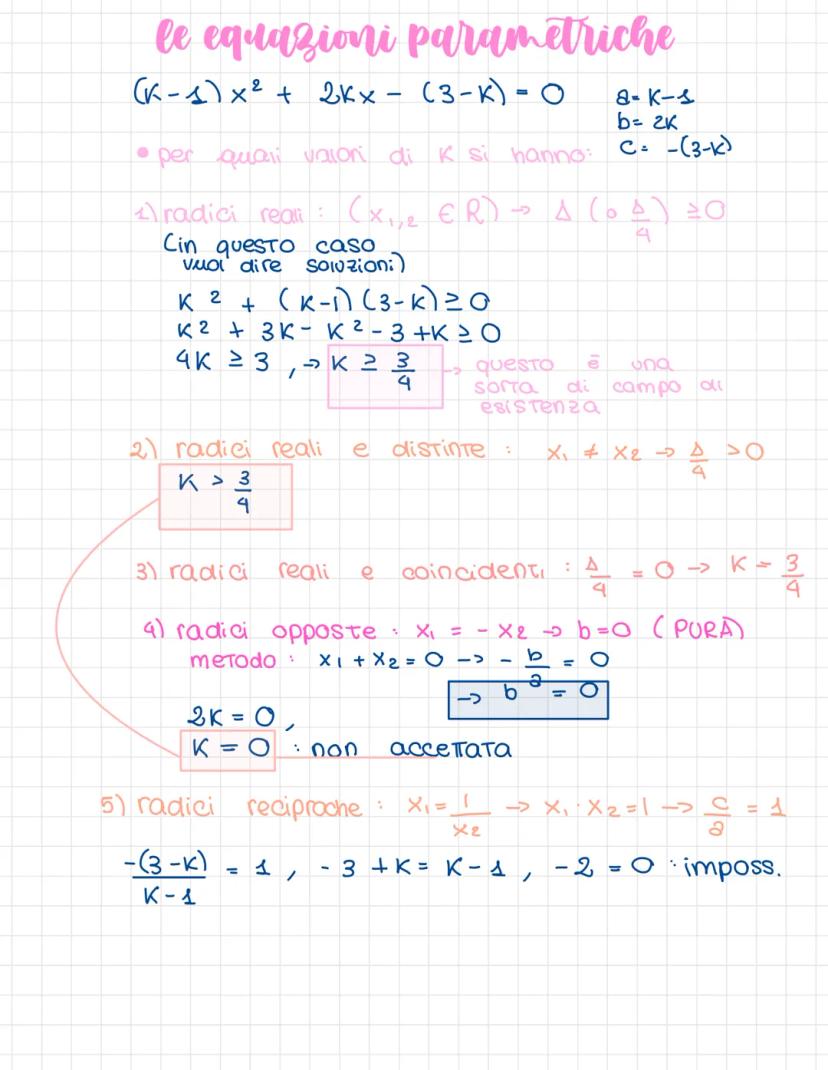 le equazioni parametriche
(K-1) x² + 2Kx - (3-K) = 0
a= K-1
b= 2K
c= -(3-K)
• per quali valori di K si hanno:
1) radici reali : (x₁,₂ ∈ R) → Δ (o Δ/4) ≥ 0
(in questo caso
vuol dire soluzioni)
K² + (K-1) (3-K) ≥ 0
K² + 3K - K² - 3 + K ≥ 0
4K ≥ 3 , → K ≥ 3/4 → questo è una
sorta di campo di
esistenza
2) radici reali e distinte : x₁ ≠ x₂ → Δ/4 > 0
K > 3/4
3) radici reali e coincidenti : Δ/4 = 0 → K = 3/4
4) radici opposte : x₁ = - x₂ → b=0 (PURA)
metodo : x₁ + x₂ = 0 → - b/a = 0
→ b = 0
2K = 0 ,
K = 0 : non accettata
5) radici reciproche : x₁ = 1/x₂ → x₁ · x₂ = 1 → c/a = 1
-(3-K)/K-1 = 1 , - 3 + K = K - 1 , - 2 = 0 : imposs.